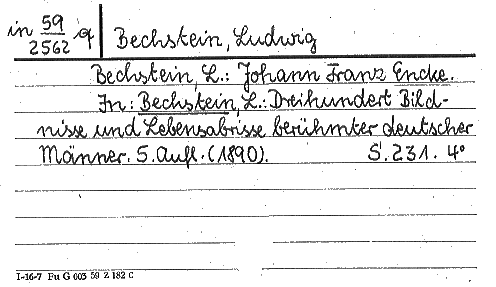 in 59/2562 q Bechstein, Ludwig
Bechstein, L.: Johann Franz Encke.
In: Bechstein, L.: Dreihundert Bild-
nisse und Lebensabrisse berühmter deutscher
Männer. 5. Aufl. (1890). S. 231. 4°
I-16-7 Fu G 003 59 Z 182 C